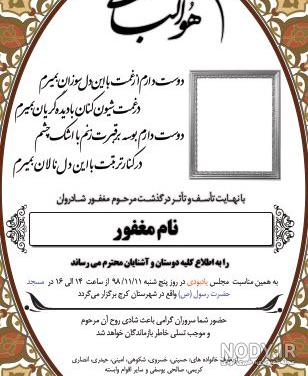 هو الباقی
دوست دارم از غمت با این دل سوزان بمیرم
در غمت شیون کنان با دیده گریان بمیرم
دوست دارم بوسه بر قبرت زنم با اشک چشم
در کنار تربتت با این دل نالان بمیرم
با نهایت تأسف و تأثر درگذشت مرحوم مغفور شادروان
نام مغفور
را به اطلاع کلیه دوستان و آشنایان محترم می رساند
به همین مناسبت مجلس یادبودی در روز پنج شنبه ۹۸/۱۱/۱۱ از ساعت ۱۴ الی ۱۶ در مسجد
حضرت رسول (ص) واقع در شهرستان کرج برگزار می‌گردد
حضور شما سروران گرامی باعث شادی روح آن مرحوم
و موجب تسلی خاطر بازماندگان خواهد شد
از طرف خانواده های: حسینی، خسروی، شکوهی، امینی، حیدری، انصاری
کریمی، صالحی، یوسفی و سایر اقوام وابسته
NODMIR